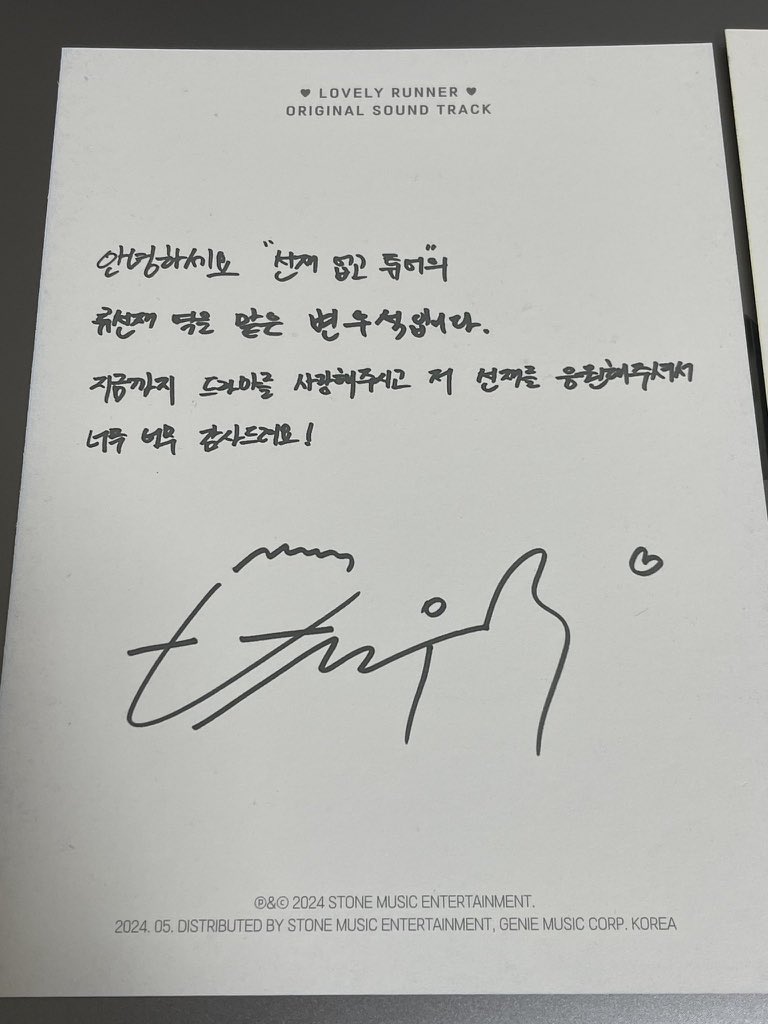 ♥ LOVELY RUNNER ♥
ORIGINAL SOUND TRACK
안녕하세요 "선재 업고 튀어"의
류선재 역을 맡은 변우석입니다.
지금까지 드라마를 사랑해주시고 저 선재를 응원해주셔서
너무 너무 감사드려요!
℗&© 2024 STONE MUSIC ENTERTAINMENT.
2024. 05. DISTRIBUTED BY STONE MUSIC ENTERTAINMENT, GENIE MUSIC CORP. KOREA